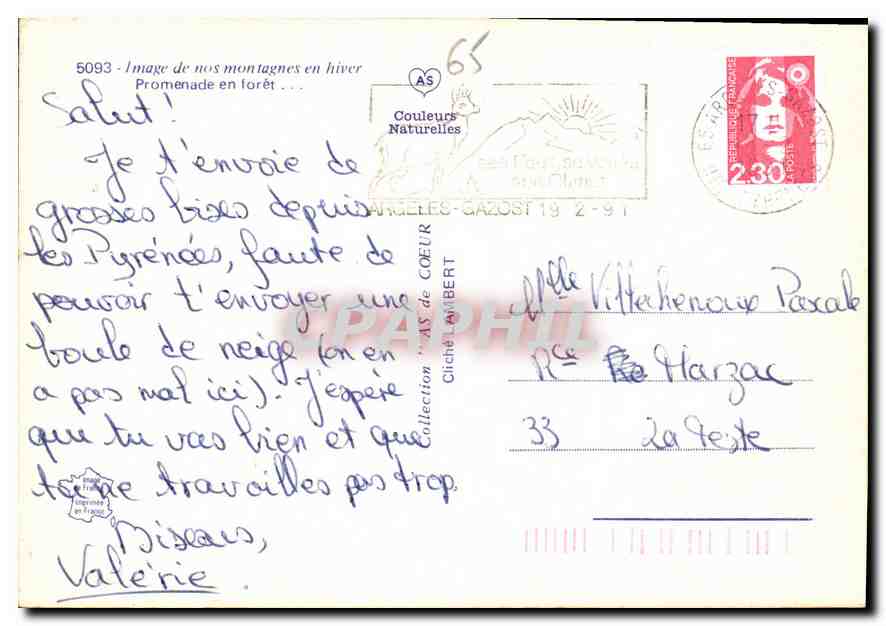 5093 - Image de nos montagnes en hiver
Promenade en forêt . . .
65
AS
Couleurs
Naturelles
ARGELES-GAZOST 19 2 -91
RÉPUBLIQUE FRANÇAISE
2,30
LA POSTE
Salut!
Je t'envoie de
grosses bises depuis
les Pyrénées, faute de
pouvoir t'envoyer une
boule de neige (on en
a pas mal ici). J'espère
que tu vas bien et que
tu ne travailles pas trop.
Bisous,
Valérie.
Image
de France
Imprimée
en France
Collection "AS de COEUR"
Cliché LAMBERT
CPAPHIL
Mlle Pascale
Rce Marzac
33 La Teste